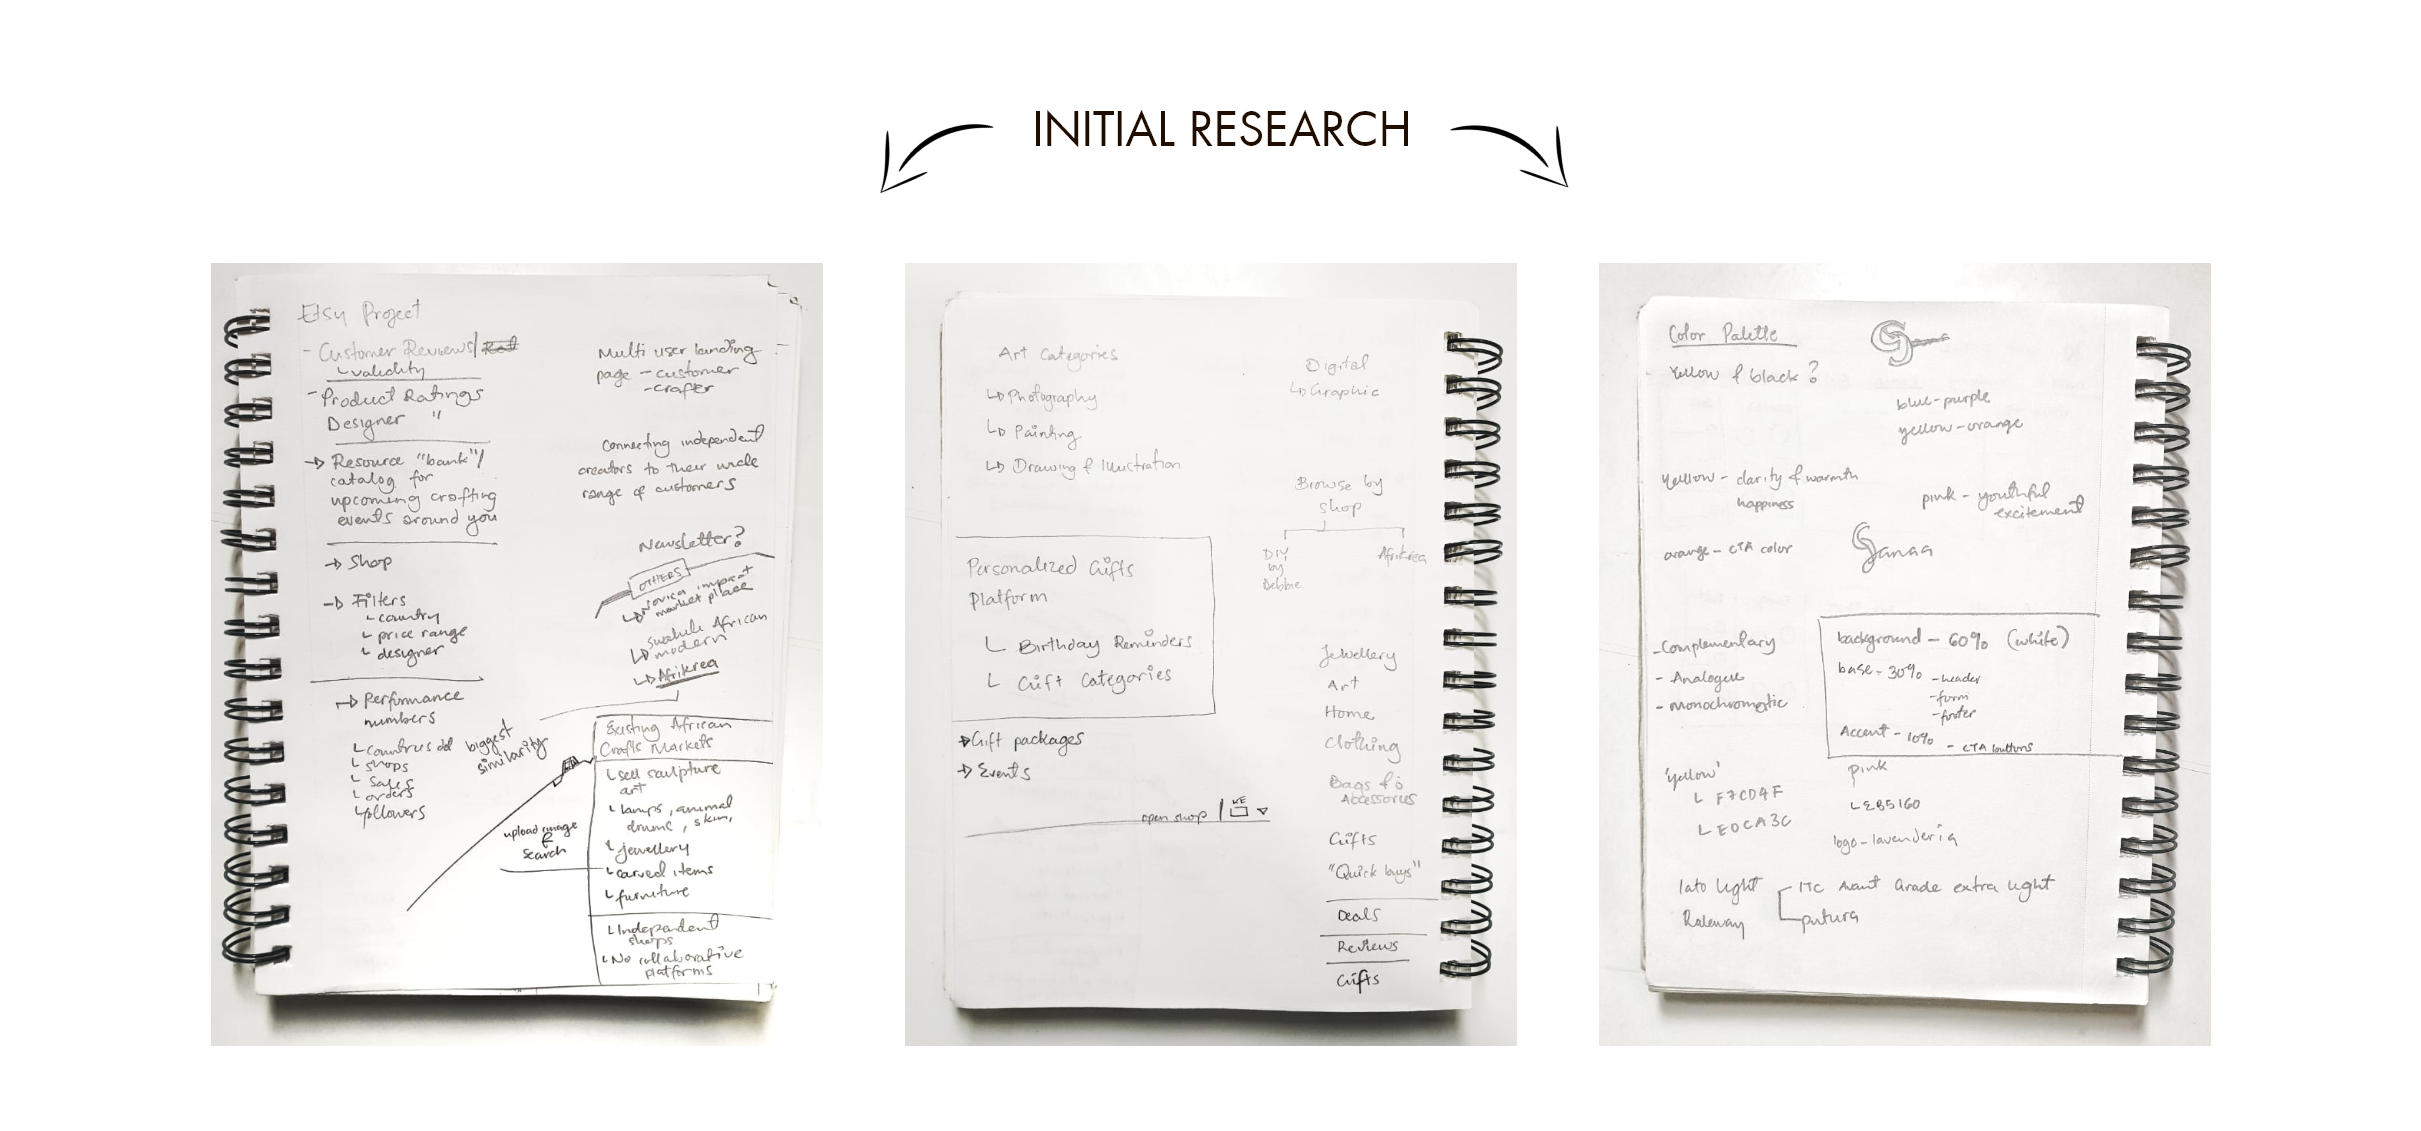 INITIAL RESEARCH
Etsy Project
- Customer Reviews/
└ validity
- Product Ratings
Designer "
→ Resource "bank"/
catalog for
upcoming crafting
events around you
→ Shop
→ Filters
└ country
└ price range
└ designer
→ Performance
numbers
└ shops
└ sales
└ orders
└ followers
Multi user landing
page - customer
- crafter
Connecting independent
creators to their wide
range of customers
Newsletter?
OTHERS
↳ Novica impact
market place
↳ swahili African
modern
↳ Afrikrea
biggest
similarity
Existing African
Crafts Markets
└ sell sculpture
art
└ lamps, animal
drums, skin,
└ jewellery
└ carved items
└ furniture
└ Independent
shops
└ No collaborative
platforms
upload image
&
search
Art Categories
↳ Photography
↳ Painting
↳ Drawing & Illustration
Digital
↳ Graphic
Browse by
shop
DIY
by
Debbie
Afrikrea
Personalized Gifts
Platform
└ Birthday Reminders
└ Gift Categories
→ Gift packages
→ Events
open shop | KE
Jewellery
Art
Home
Clothing
Bags &
Accessories
Gifts
"Quick buys"
Deals
Reviews
Gifts
Color Palette
Yellow & black?
blue-purple
yellow-orange
yellow - clarity & warmth
happiness
pink - youthful
excitement
orange - CTA color
Sanaa
- Complementary
- Analogue
- Monochromatic
background - 60% (white)
base - 30% - header
- form
- footer
Accent - 10%
- CTA buttons
'yellow'
└ F7CD4F
└ E0CA3C
pink
└ EB5160
logo - lavenderia
lato light
Raleway
ITC Avant Grade extra light
futura